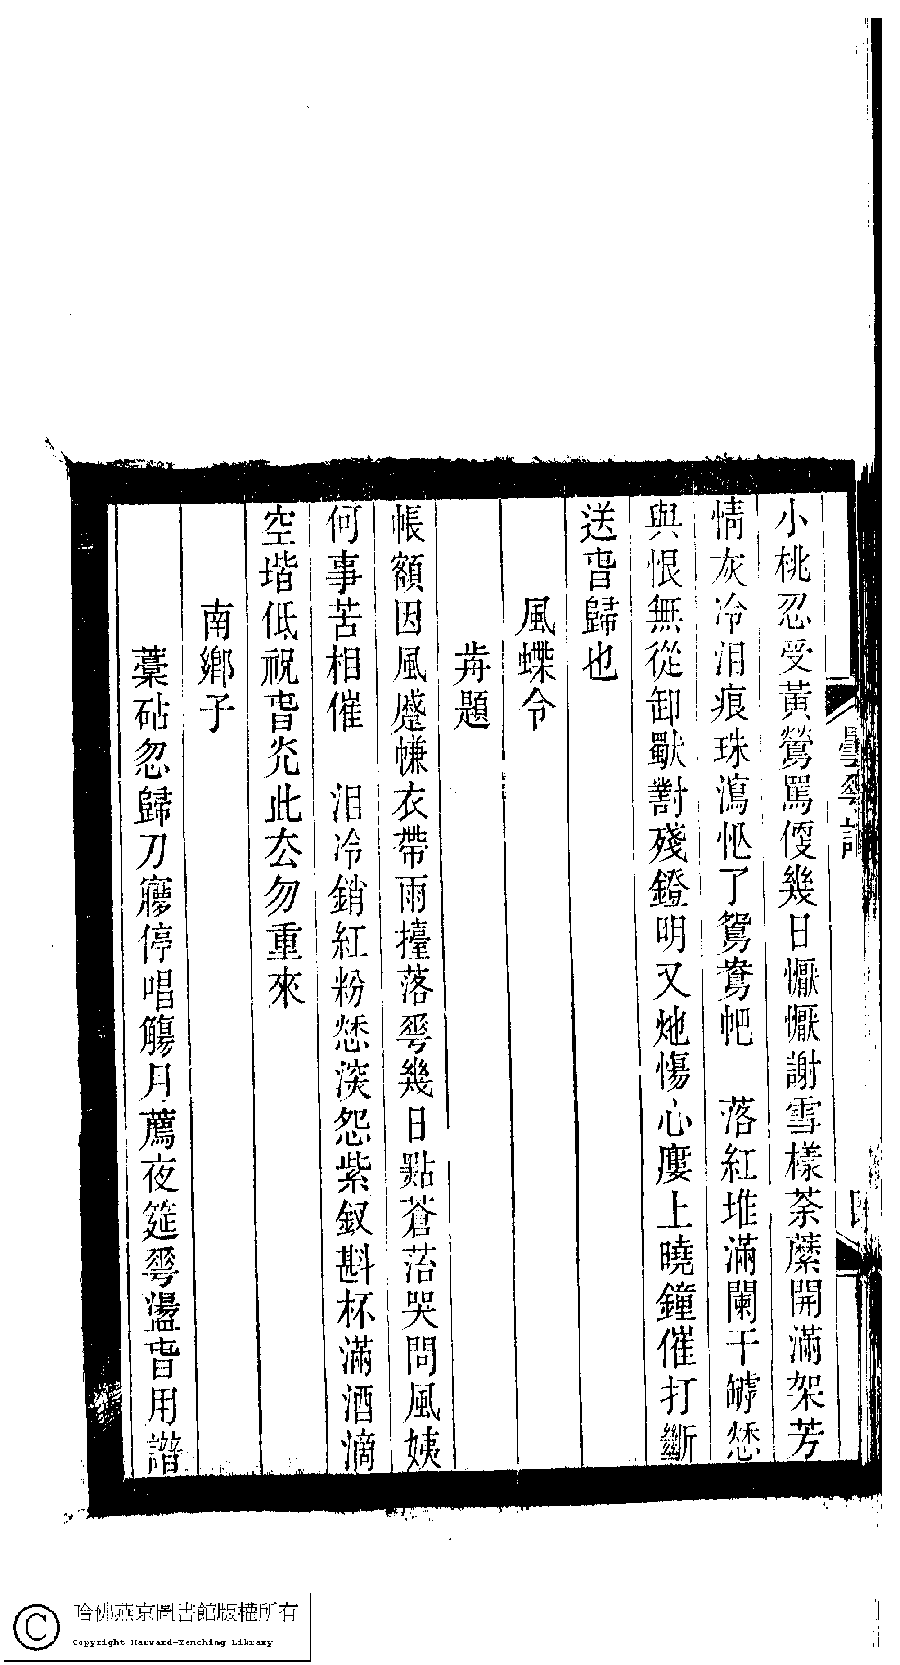 小桃忍受黃鶯罵傻幾日懨懨謝雪樣荼蘼開滿架芳
情灰冷泪痕珠瀉怭了鴛鴦帊　落紅堆滿闌干罅愁
與恨無從卸厭對殘鐙明又灺傷心廔上曉鐘催打斷
送旾歸也
風蝶令
歬題
帳額因風蹙㡘衣帶雨擡落蕐幾日點蒼苔哭問風姨
何事苦相催　泪冷銷紅粉愁深怨紫釵斟杯滿酒滴
空堦低祝旾光此厺勿重來
南鄉子
藁砧忽歸刀㝱停唱觴月薦夜筵蕐盪旾用諧
曇蕐詞
四
哈佛燕京圖書館版權所有
Copyright Harvard-Yenching Library